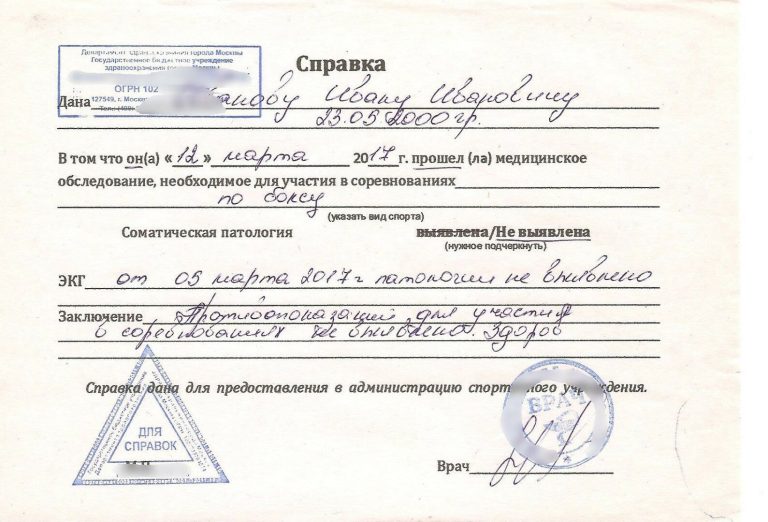 Департамент здравоохранения города Москвы
Государственное бюджетное учреждение
здравоохранения
ОГРН 102
127549, г. Москва
Справка
Дана Иванову Ивану Ивановичу
23.05 2000 гр.
В том что он(а) «12» марта 2017 г. прошел (ла) медицинское
обследование, необходимое для участия в соревнованиях
по боксу
(указать вид спорта)
Соматическая патология выявлена/Не выявлена
(нужное подчеркнуть)
ЭКГ от 05 марта 2017 г патологии не выявлено
Заключение Противопоказаний для участия
в соревнованиях не выявлено. Здоров
Справка дана для предоставления в администрацию спортивного учреждения.
ВРАЧ
ДЛЯ
СПРАВОК
М.П.
Врач